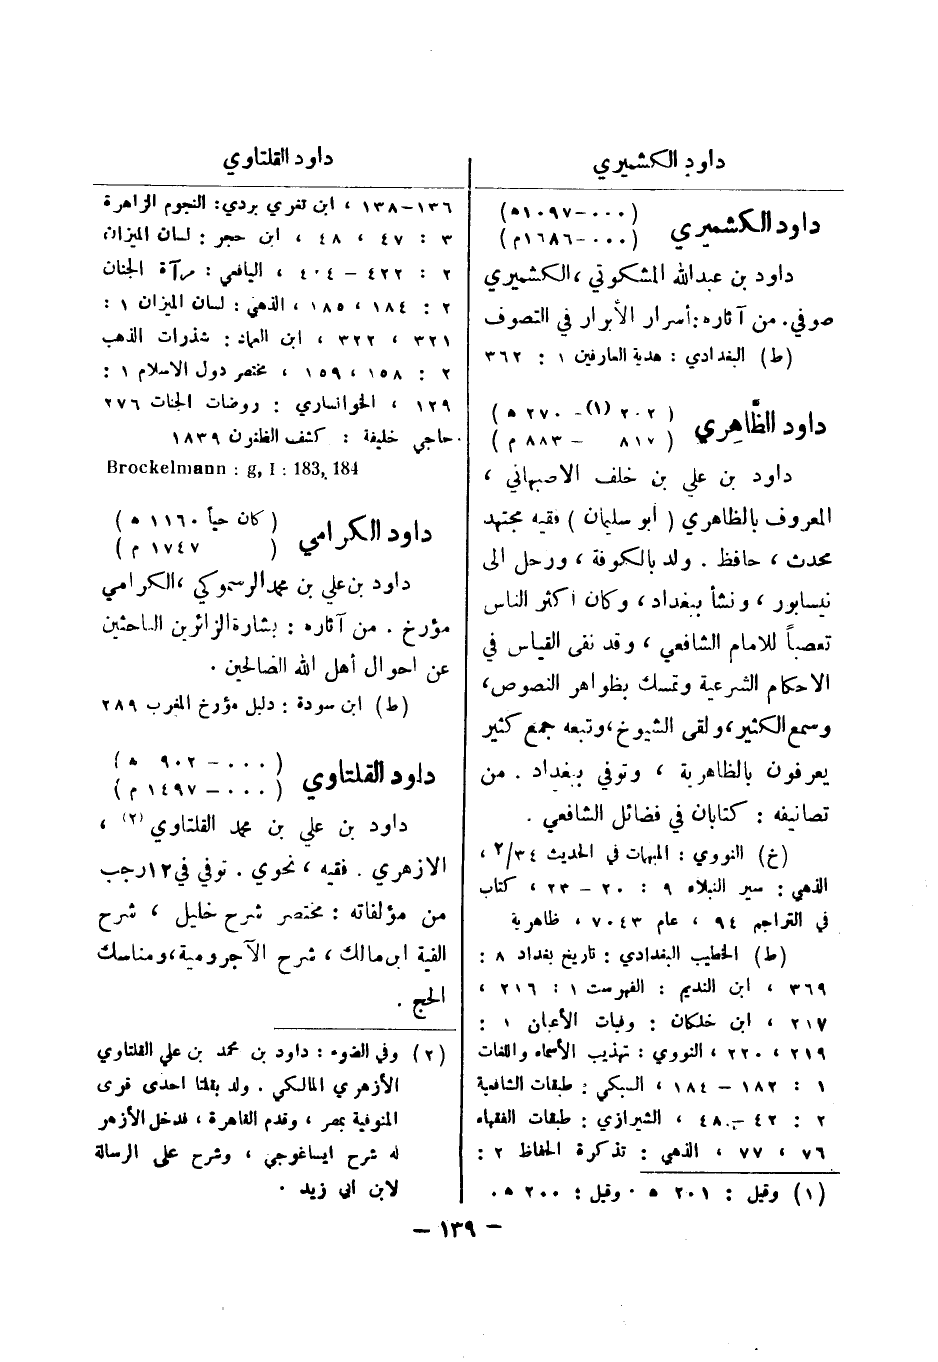 داود الكشميري
داود الكشميري
(٠٠٠-١٠٩٧ه)
(٠٠٠-١٦٨٦م)
داود بن عبدالله المشكوتي ، الكشميري
صوفي. من آثاره: أسرار الأبرار في التصوف
(ط) البغدادي : هدية العارفين ١ : ٣٦٢
داود الظَّاهِري
(٢٠٢ (١)- ٢٧٠ ه)
(٨١٧ - ٨٨٣ م)
داود بن علي بن خلف الاصبهاني ،
المعروف بالظاهري ( أبو سليمان ) فقيه مجتهد
محدث ، حافظ . ولد بالكوفة ، ورحل الى
نيسابور ، ونشأ ببغداد ، وكان اكثر الناس
تعصباً للامام الشافعي ، وقد نفى القياس في
الاحكام الشرعية وتمسك بظواهر النصوص،
وسمع الكثير، ولقى الشيوخ، وتبعه جمع كثير
يعرفون بالظاهرية ، وتوفي ببغداد . من
تصانيفه : كتابان في فضائل الشافعي .
(خ) النووي : المبهات في الحديث ٢/٣٤ ،
الذهبي : سير النبلاء ٩ : ٢٠ - ٢٣ ، كتاب
في التراجم ٩٤ ، عام ٧٠٤٣ ، ظاهرية
(ط) الخطيب البغدادي : تاريخ بغداد ٨ :
٣٦٩ ، ابن النديم : الفهرست ١ : ٢١٦ ،
٢١٧ ، ابن خلكان : وفيات الأعيان ١ :
٢١٩ ، ٢٢٠ ، النووي : تهذيب الأسماء واللغات
١ : ١٨٢ - ١٨٤ ، السبكي : طبقات الشافعية
٢ : ٤٢ - ٤٨ ، الشيرازي : طبقات الفقهاء
٧٦ ، ٧٧ ، الذهبي : تذكرة الحفاظ ٢ :
(١) وقيل : ٢٠١ ه . وقيل : ٢٠٠ ه .
داود القلتاوي
١٣٦-١٣٨ ، ابن تغري بردي: النجوم الزاهرة
٣ : ٤٧ ، ٤٨ ، ابن حجر : لسان الميزان
٢ : ٤٢٢ - ٤٠٤ ، اليافعي : مرآة الجنان
٢ : ١٨٤ ، ١٨٥ ، الذهبي : لسان الميزان ١ :
٣٢١ ، ٣٢٢ ، ابن العماد : شذرات الذهب
٢ : ١٥٨ ، ١٥٩ ، مختصر دول الاسلام ١ :
١٢٩ ، الخوانساري : روضات الجنات ٢٧٦
حاجي خليفة : كشف الظنون ١٨٣٩
Brockelmann : g, I : 183, 184
داود الكرامي
( كان حياً ١١٦٠ ه )
( ١٧٤٧ م )
داود بن علي بن محمد الرسموكي ، الكرامي
مؤرخ . من آثاره : بشارة الزائرين الباحثين
عن احوال أهل الله الصالحين .
(ط) ابن سودة : دليل مؤرخ المغرب ٢٨٩
داود القلتاوي
( ٠٠٠ - ٩٠٢ ه )
( ٠٠٠ - ١٤٩٧ م )
داود بن علي بن محمد القلتاوي (٢) ،
الازهري . فقيه ، نحوي . توفي في ١٢ رجب
من مؤلفاته : مختصر شرح خليل ، شرح
الفية ابن مالك ، شرح الآجرومية، ومناسك
الحج .
(٢) وفي الضوء : داود بن محمد بن علي القلتاوي
الأزهري المالكي . ولد بقلتا احدى قرى
المنوفية بمصر ، وقدم القاهرة ، فدخل الأزهر
له شرح ايساغوجي ، وشرح على الرسالة
لابن ابي زيد .
- ١٣٩ -